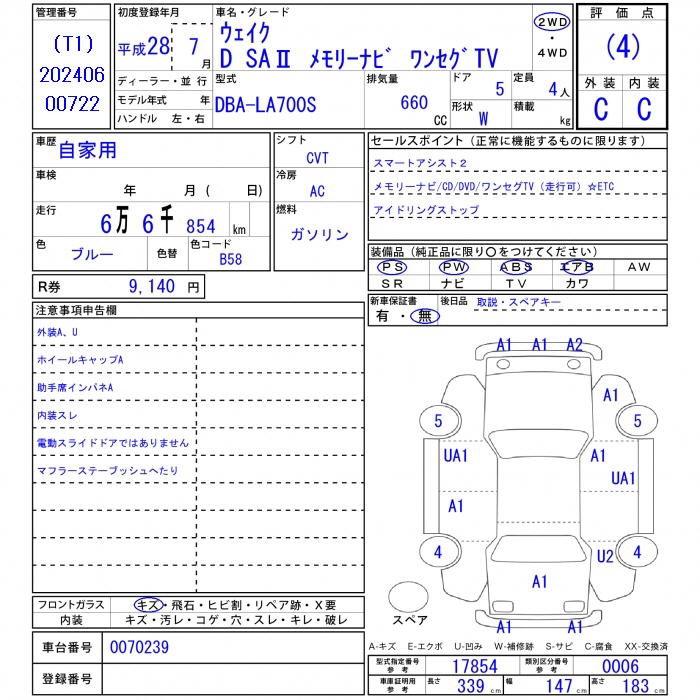 管理番号
(T1)
202406
00722
初度登録年月
平成28年 7月
ディーラー・並行
モデル年式 年
ハンドル 左・右
車名・グレード
ウェイク
D SAⅡ メモリーナビ ワンセグTV
2WD
・
4WD
型式
DBA-LA700S
排気量
660 CC
ドア
5
形状
W
定員
4人
積載
kg
評価点
(4)
外装 内装
C C
車歴
自家用
車検
年 月 ( 日)
走行
6万 6千 854 km
色
ブルー
色替
色コード
B58
シフト
CVT
冷房
AC
燃料
ガソリン
R券 9,140 円
セールスポイント (正常に機能するものに限ります)
スマートアシスト2
メモリーナビ/CD/DVD/ワンセグTV (走行可) ☆ETC
アイドリングストップ
装備品 (純正品に限り〇をつけてください)
PS PW ABS エアB AW
SR ナビ TV カワ
新車保証書
有・無
後日品 取説・スペアキー
注意事項申告欄
外装A、U
ホイールキャップA
助手席インパネA
内装スレ
電動スライドドアではありません
マフラーステーブッシュへたり
フロントガラス キズ・飛石・ヒビ割・リペア跡・X要
内装 キズ・汚レ・コゲ・穴・スレ・キレ・破レ
車台番号 0070239
登録番号
A1 A1 A2
A1
5 5
UA1 A1
UA1
A1
4 U2 4
A1
スペア
A1 A1
A-キズ E-エクボ U-凹み W-補修跡 S-サビ C-腐食 XX-交換済
型式指定番号 参考 17854 類別区分番号 参考 0006
車庫証明用 参考 長さ 339 cm 幅 147 cm 高さ 183 cm